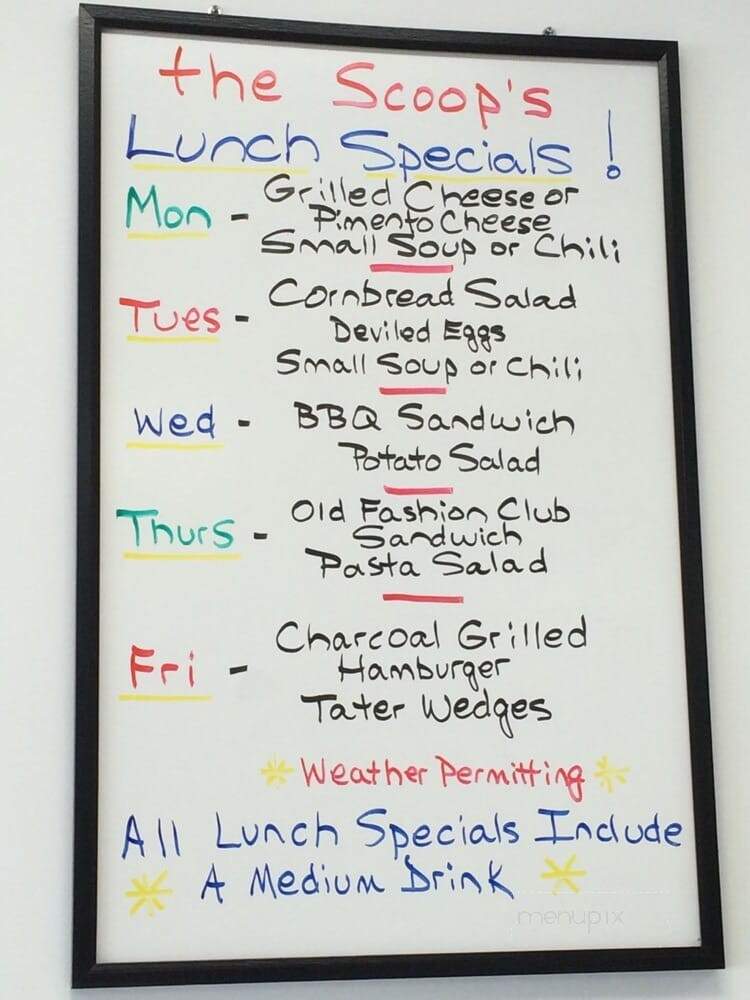 the Scoop's
Lunch Specials!
Mon - Grilled Cheese or
Pimento Cheese
Small Soup or Chili
Tues - Cornbread Salad
Deviled Eggs
Small Soup or Chili
Wed - BBQ Sandwich
Potato Salad
Thurs - Old Fashion Club
Sandwich
Pasta Salad
Fri - Charcoal Grilled
Hamburger
Tater Wedges
* Weather Permitting *
All Lunch Specials Include
* A Medium Drink *
menupix